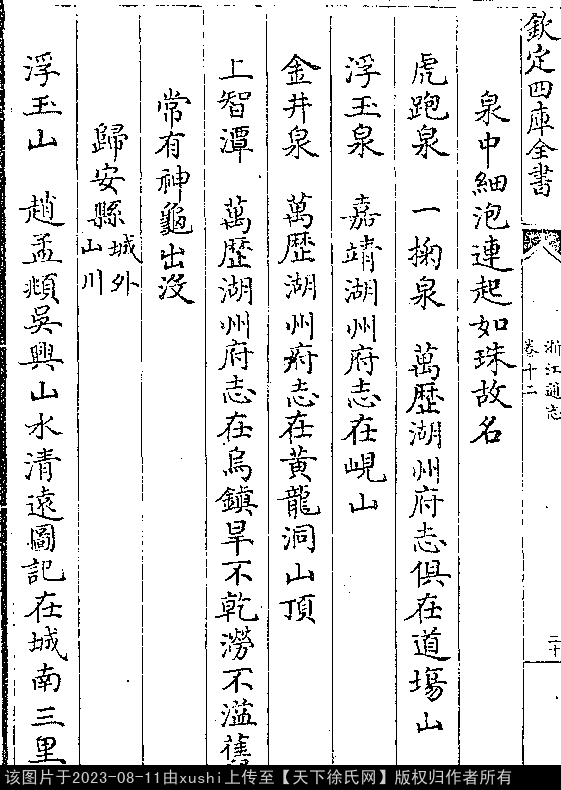 欽定四庫全書
浙江通志
卷十二
二十
泉中細泡連起如珠故名
虎跑泉 一掬泉 萬歴湖州府志俱在道場山
浮玉泉 嘉靖湖州府志在峴山
金井泉 萬歴湖州府志在黃龍洞山頂
上智潭 萬歴湖州府志在烏鎮旱不乾澇不溢舊
常有神龜出沒
歸安縣 城外
山川
浮玉山 趙孟頫吳興山水清遠圖記在城南三里
该图片于2023-08-11由xushi上传至【天下徐氏网】版权归作者所有